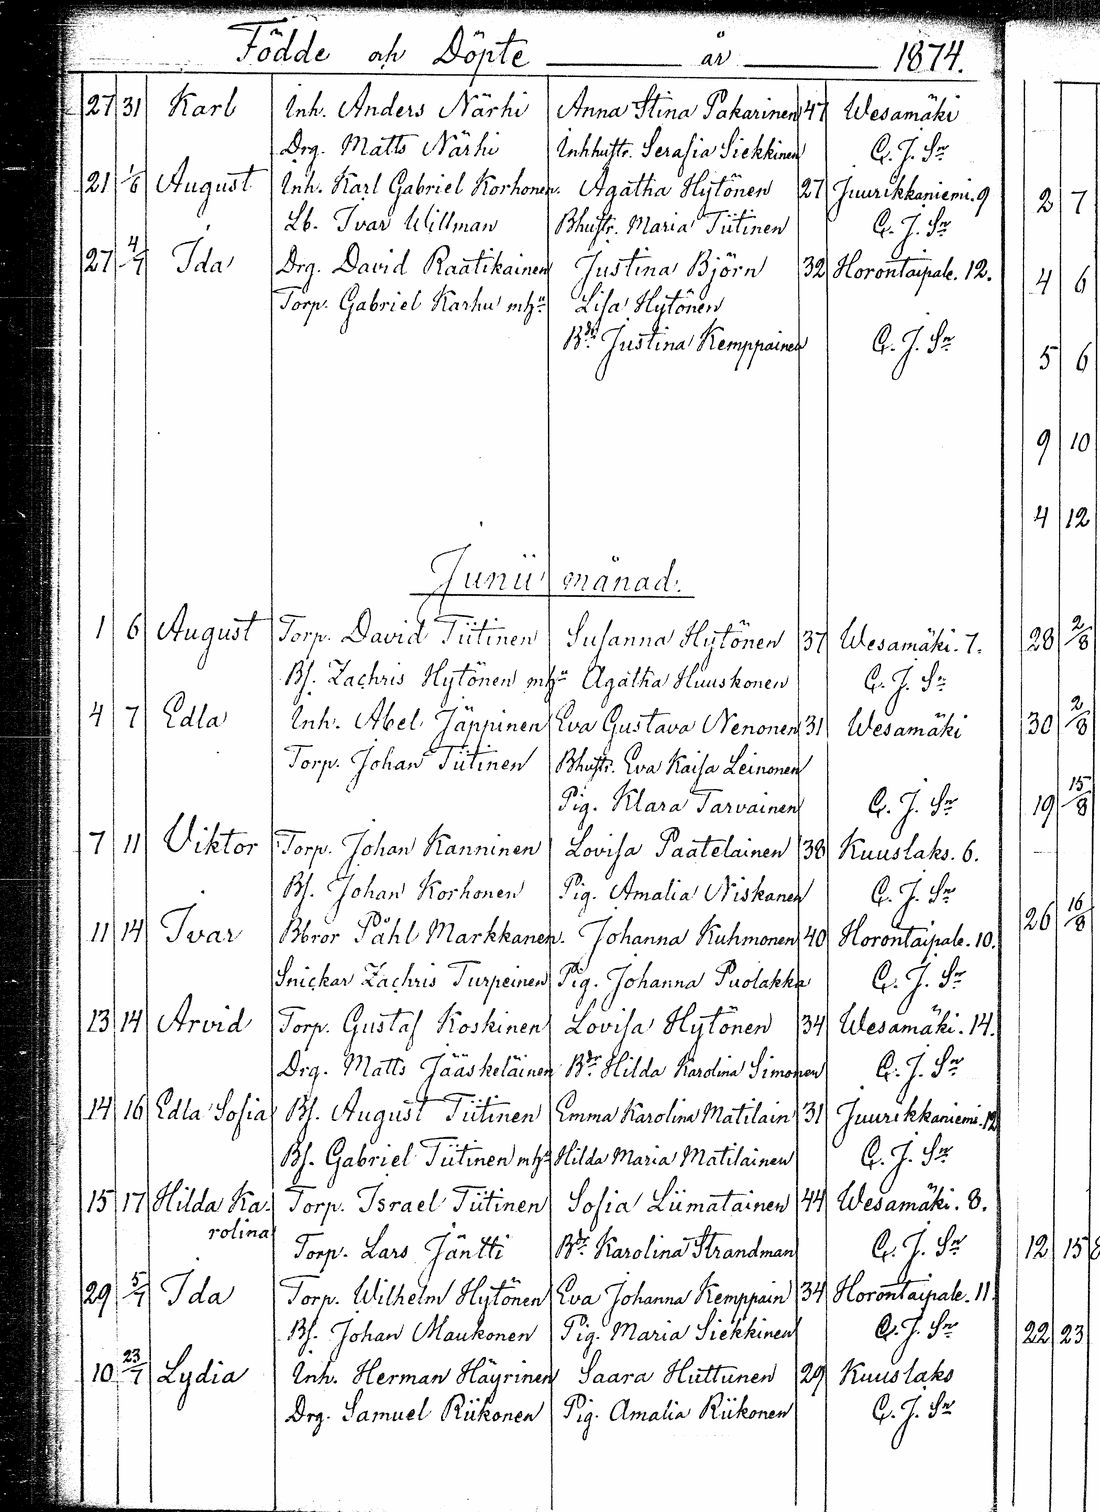 Födde och Döpte år 1874.
27 31 Karl Inh. Anders Närhi Anna Stina Pakarinen 47 Wesamäki
Drg. Matts Närhi Inhhustr. Serafia Siekkinen C. J. Sn
21 1/6 August Inh. Karl Gabriel Korhonen. Agatha Hytönen 27 Juurikkaniemi. 9
Lb. Ivar Willman Bhustr. Maria Tiitinen C. J. Sn
27 4/7 Ida Drg. David Raatikainen Justina Björn 32 Horontaipale. 12.
Torp. Gabriel Karhu mhu Lisa Hytönen
Bdr. Justina Kemppainen C. J. Sn
Junii månad.
1 6 August Torp. David Tiitinen Susanna Hytönen 37 Wesamäki. 7.
Bs. Zachris Hytönen mhu Agatha Huuskonen C. J. Sn
4 7 Edla Inh. Abel Jäppinen Eva Gustava Nenonen 31 Wesamäki
Torp. Johan Tiitinen Bhustr. Eva Kaisa Leinonen
Pig. Klara Tarvainen C. J. Sn
7 11 Viktor Torp. Johan Kanninen Lovisa Paatelainen 38 Kuuslaks. 6.
Bs. Johan Korhonen Pig. Amalia Niskanen C. J. Sn
11 14 Ivar Bbror Påhl Markkanen. Johanna Kuhmonen 40 Horontaipale. 10.
Snickar Zachris Turpeinen Pig. Johanna Puolakka C. J. Sn
13 14 Arvid Torp. Gustaf Koskinen Lovisa Hytönen 34 Wesamäki. 14.
Drg. Matts Jääskeläinen Bdr. Hilda Karolina Simonen C. J. Sn
14 16 Edla Sofia Bs. August Tiitinen Emma Karolina Matilain 31 Juurikkaniemi. 12
Bs. Gabriel Tiitinen mhu Hilda Maria Matilainen C. J. Sn
15 17 Hilda Ka- Torp. Israel Tiitinen Sofia Liimatainen 44 Wesamäki. 8.
rolina
Torp. Lars Jäntti Bdr. Karolina Strandman C. J. Sn
29 5/7 Ida Torp. Wilhelm Hytönen Eva Johanna Kemppain 34 Horontaipale. 11.
Bs. Johan Maukonen Pig. Maria Siekkinen C. J. Sn
10 23/7 Lydia Inh. Herman Häyrinen Saara Huttunen 29 Kuuslaks
Drg. Samuel Riikonen Pig. Amalia Riikonen C. J. Sn
2 7
4 6
5 6
9 10
4 12
28 2/8
30 2/8
19 15/8
26 16/8
12 15 8
22 23